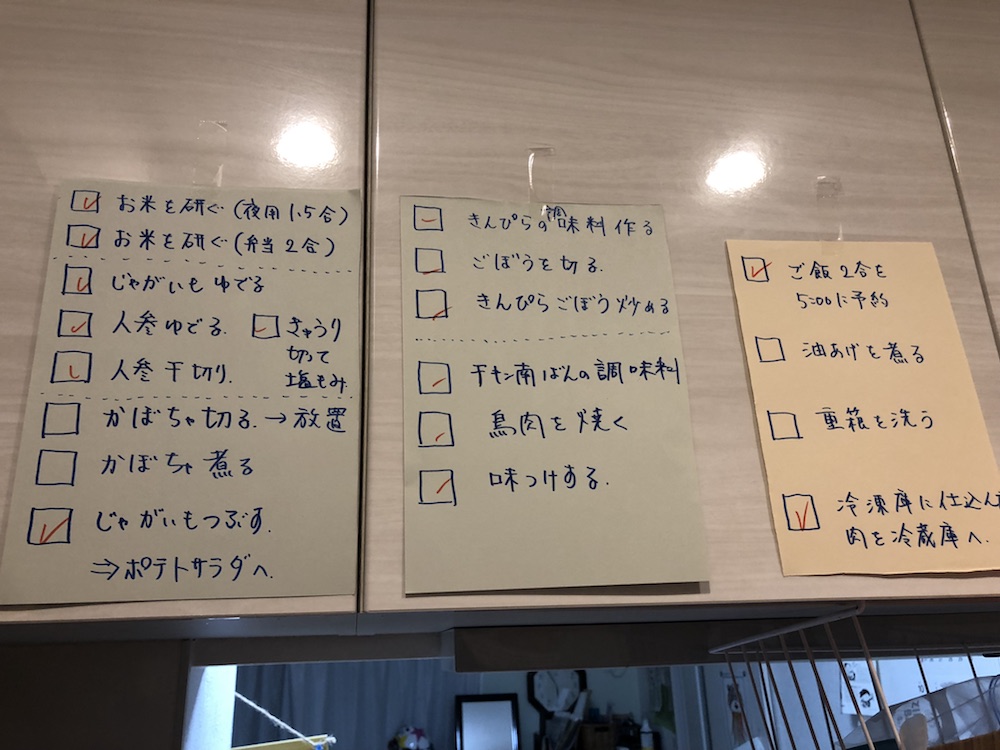 お米を研ぐ(夜用1.5合)
お米を研ぐ(弁当2合)
じゃがいもゆでる
人参ゆでる.
人参千切り.
きゅうり
切って
塩もみ.
かぼちゃ切る.→放置
かぼちゃ煮る
じゃがいもつぶす.
⇒ポテトサラダへ.
きんぴらの調味料作る
ごぼうを切る.
きんぴらごぼう炒める
チキン南ばんの調味料
鳥肉を焼く
味つけする.
ご飯2合を
5:00に予約
油あげを煮る
重箱を洗う
冷凍庫に仕込んだ
肉を冷蔵庫へ.